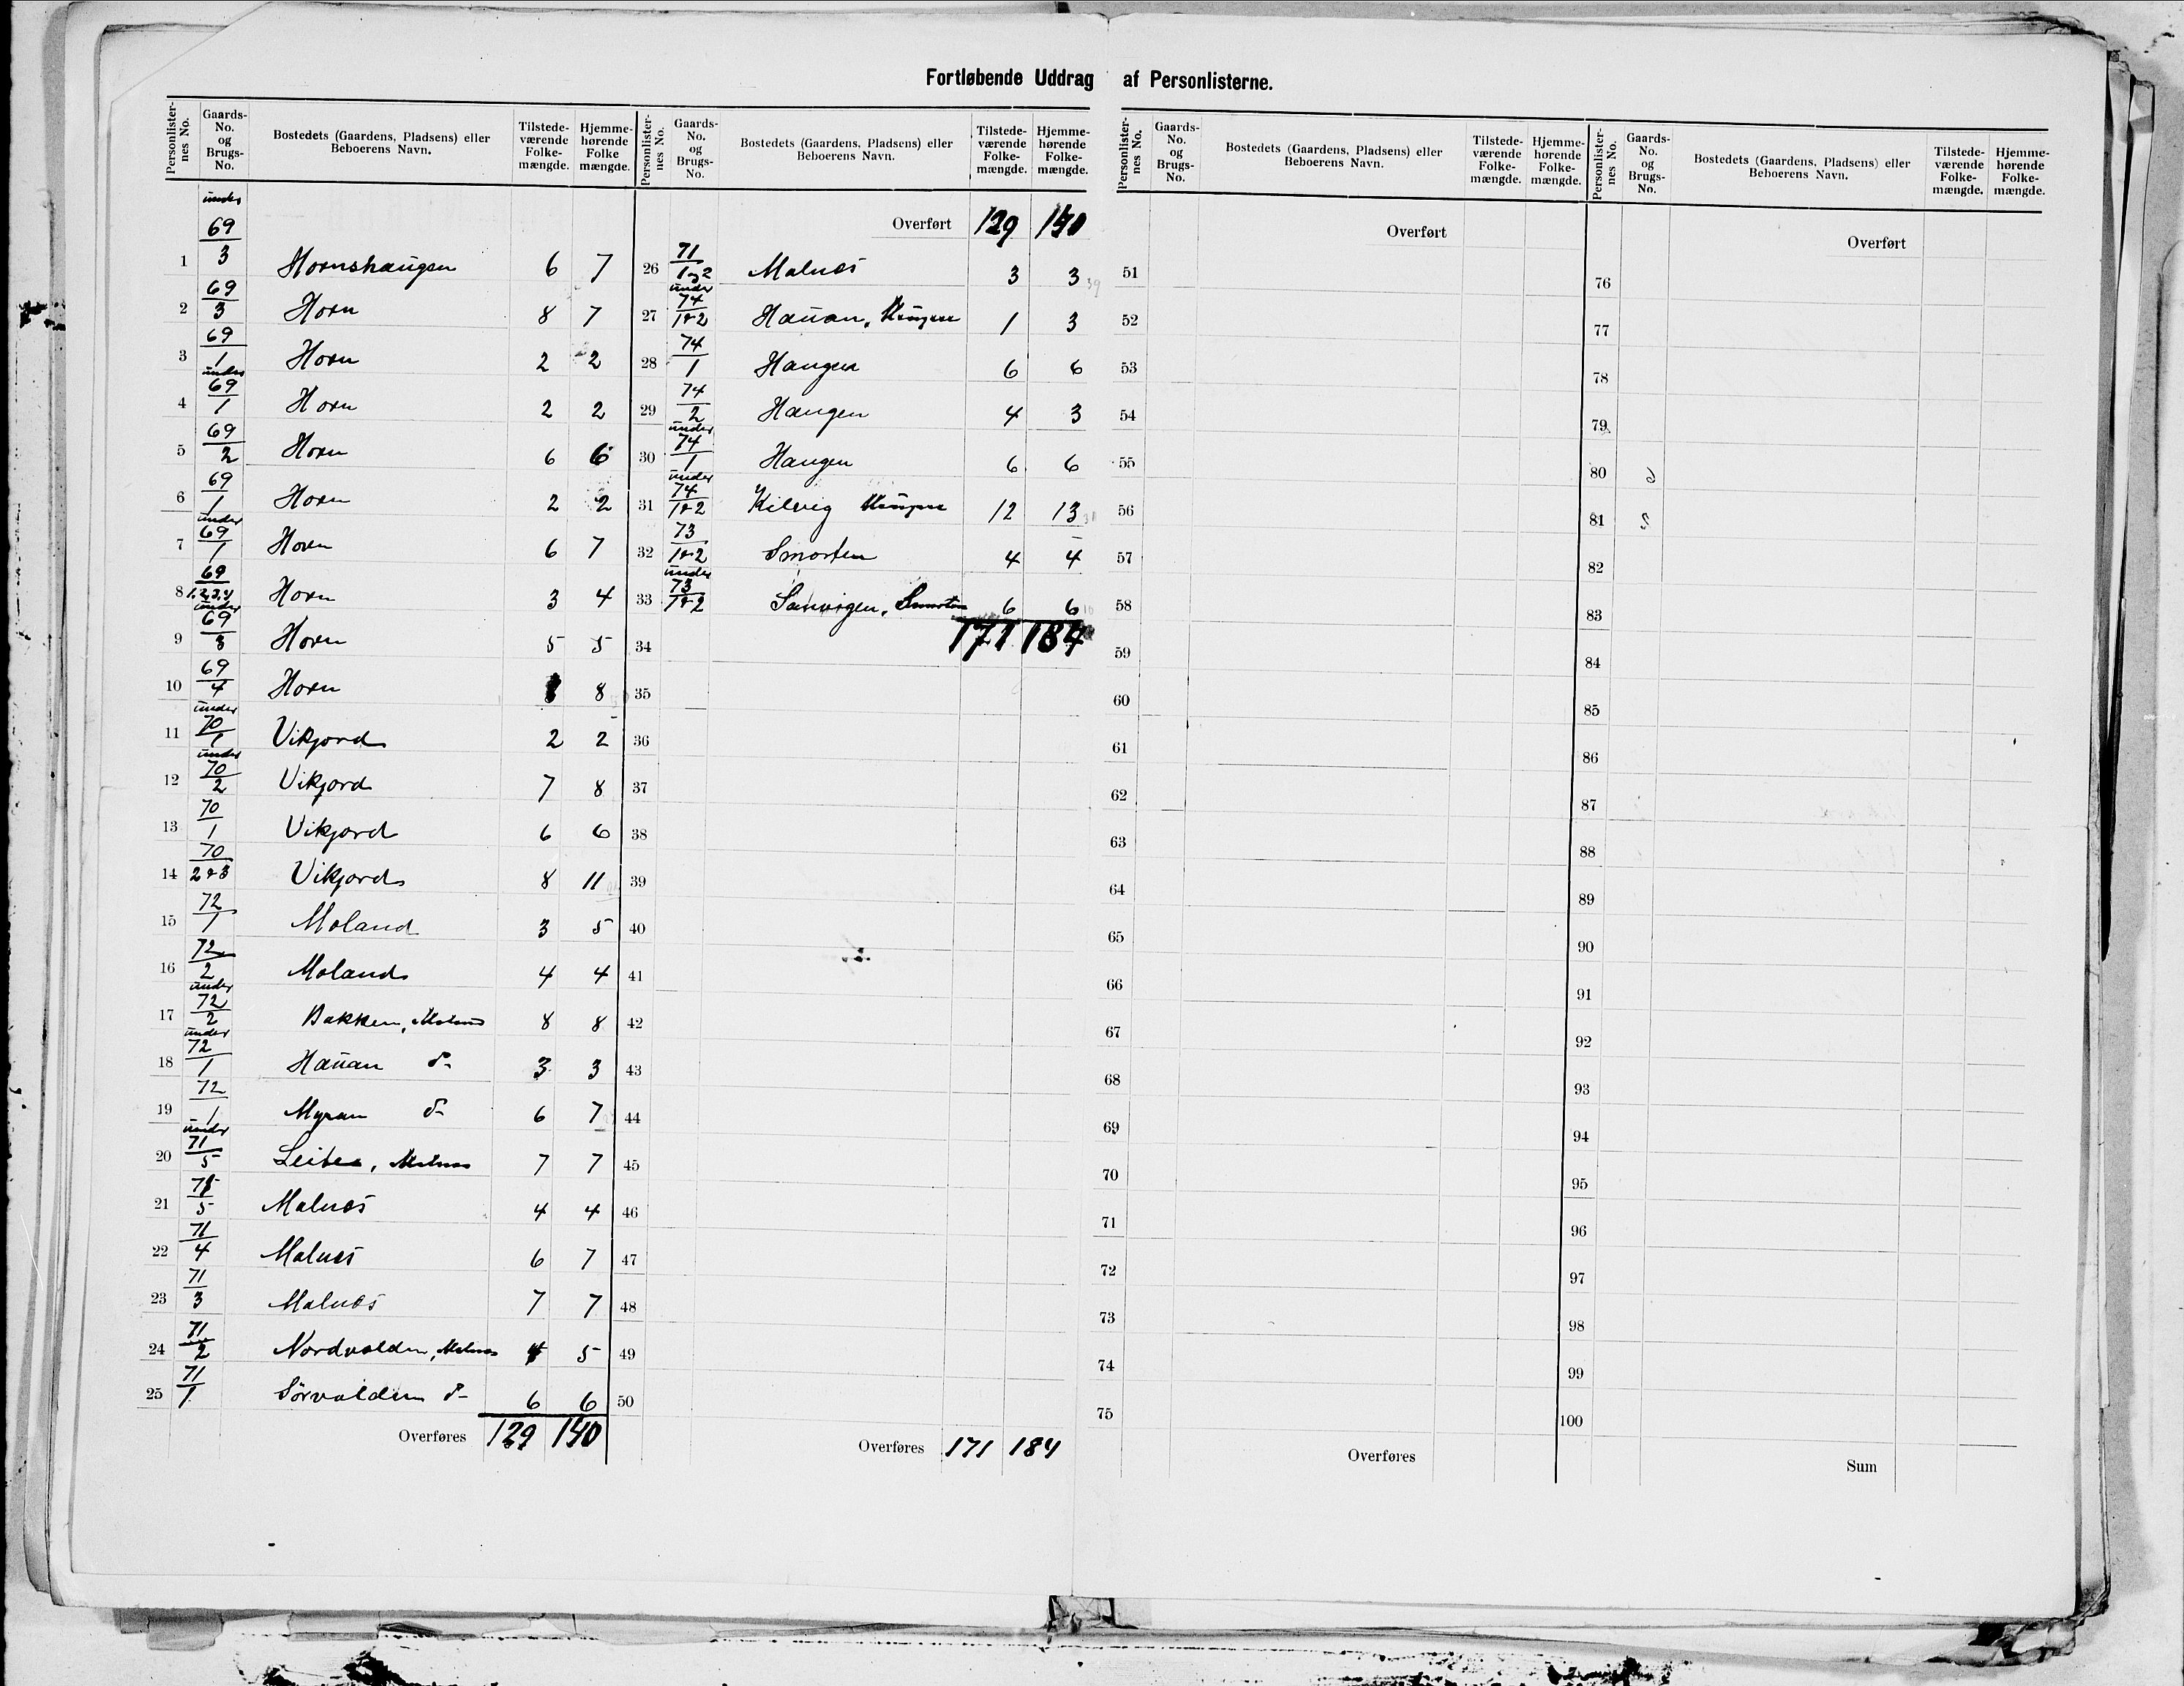 Fortløbende Uddrag af Personlisterne.
Personlisternes No. Gaards-No. og Brugs-No. Bostedets (Gaardens, Pladsens) eller Beboerens Navn. Tilstedeværende Folkemængde. Hjemmehørende Folkemængde.
1 under 69/3 Hornshaugen 6 7
2 69/3 Horn 8 7
3 69/1 Horn 2 2
4 under 69/1 Horn 2 2
5 69/2 Horn 6 6
6 69/1 Horn 2 2
7 under 69/1 Horn 6 7
8 69/1,2,3,4 Horn 3 4
9 under 69/3 Horn 5 5
10 69/4 Horn 8 8
11 under 70/1 Vikjord 2 2
12 under 70/2 Vikjord 7 8
13 70/1 Vikjord 6 6
14 70/2 & 3 Vikjord 8 11
15 72/1 Moland 3 5
16 72/2 Moland 4 4
17 under 72/2 Bakken, Moland 8 8
18 under 72/1 Hauan do 3 3
19 72/1 Myran do 6 7
20 under 71/5 Leite, Malnes 7 7
21 71/5 Malnes 4 4
22 71/4 Malnes 6 7
23 71/3 Malnes 7 7
24 71/2 Nordvolden, Malnes 4 5
25 71/1 Sørvolden do 6 6
Overføres 129 140
Personlisternes No. Gaards-No. og Brugs-No. Bostedets (Gaardens, Pladsens) eller Beboerens Navn. Tilstedeværende Folkemængde. Hjemmehørende Folkemængde.
Overført 129 140
26 71/1 og 2 Malnes 3 3
27 under 74/1 & 2 Hauan, 1 3
28 74/1 Haugen 6 6
29 74/2 Haugen 4 3
30 under 74/1 Haugen 6 6
31 under 74/1 & 2 Kilvig 12 13
32 73/1 & 2 Smorten 4 4
33 under 73/1 & 2 Smorten 6 6
34 171 184
35
36
37
38
39
40
41
42
43
44
45
46
47
48
49
50
Overføres 171 184
Personlisternes No. Gaards-No. og Brugs-No. Bostedets (Gaardens, Pladsens) eller Beboerens Navn. Tilstedeværende Folkemængde. Hjemmehørende Folkemængde.
Overført
51
52
53
54
55
56
57
58
59
60
61
62
63
64
65
66
67
68
69
70
71
72
73
74
75
Overføres
Personlisternes No. Gaards-No. og Brugs-No. Bostedets (Gaardens, Pladsens) eller Beboerens Navn. Tilstedeværende Folkemængde. Hjemmehørende Folkemængde.
Overført
76
77
78
79
80
81
82
83
84
85
86
87
88
89
90
91
92
93
94
95
96
97
98
99
100
Sum